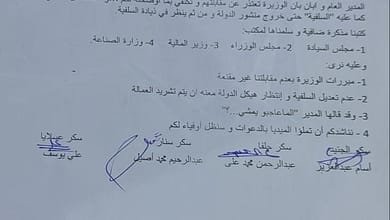 المدير العام و ابان بأن الوزيرة تعتذر عن مقابلتهم و نكتفي بما
كما عليه "السلفية" حتى خروج منشور الدولة و من ثم ينظر في زيادة السلفية
كتبنا مذكرة ضافية و سلمناها لمكتب:
1- مجلس السيادة 2- مجلس الوزراء 3- وزير المالية 4- وزارة الصناعة
وعليه نرى:
1 - مبررات الوزيرة بعدم مقابلتنا غير مقنعة
2 - عدم تعديل السلفية و إنتظار هيكل الدولة معنه ان يتم تشريد العمالة
3 - وقد قالها المدير "الماعاجبو يمشي...؟"
4 - نناشدكم أن تملوا الميديا بالدعوات و سنظل أوفياء لكم
سكر الجنيد سكر حلفا سكر سنار سكر عسلايا
أسام عبدالعزيز عبدالرحمن محمد على عبدالرحيم محمد أصيل علي يوسف